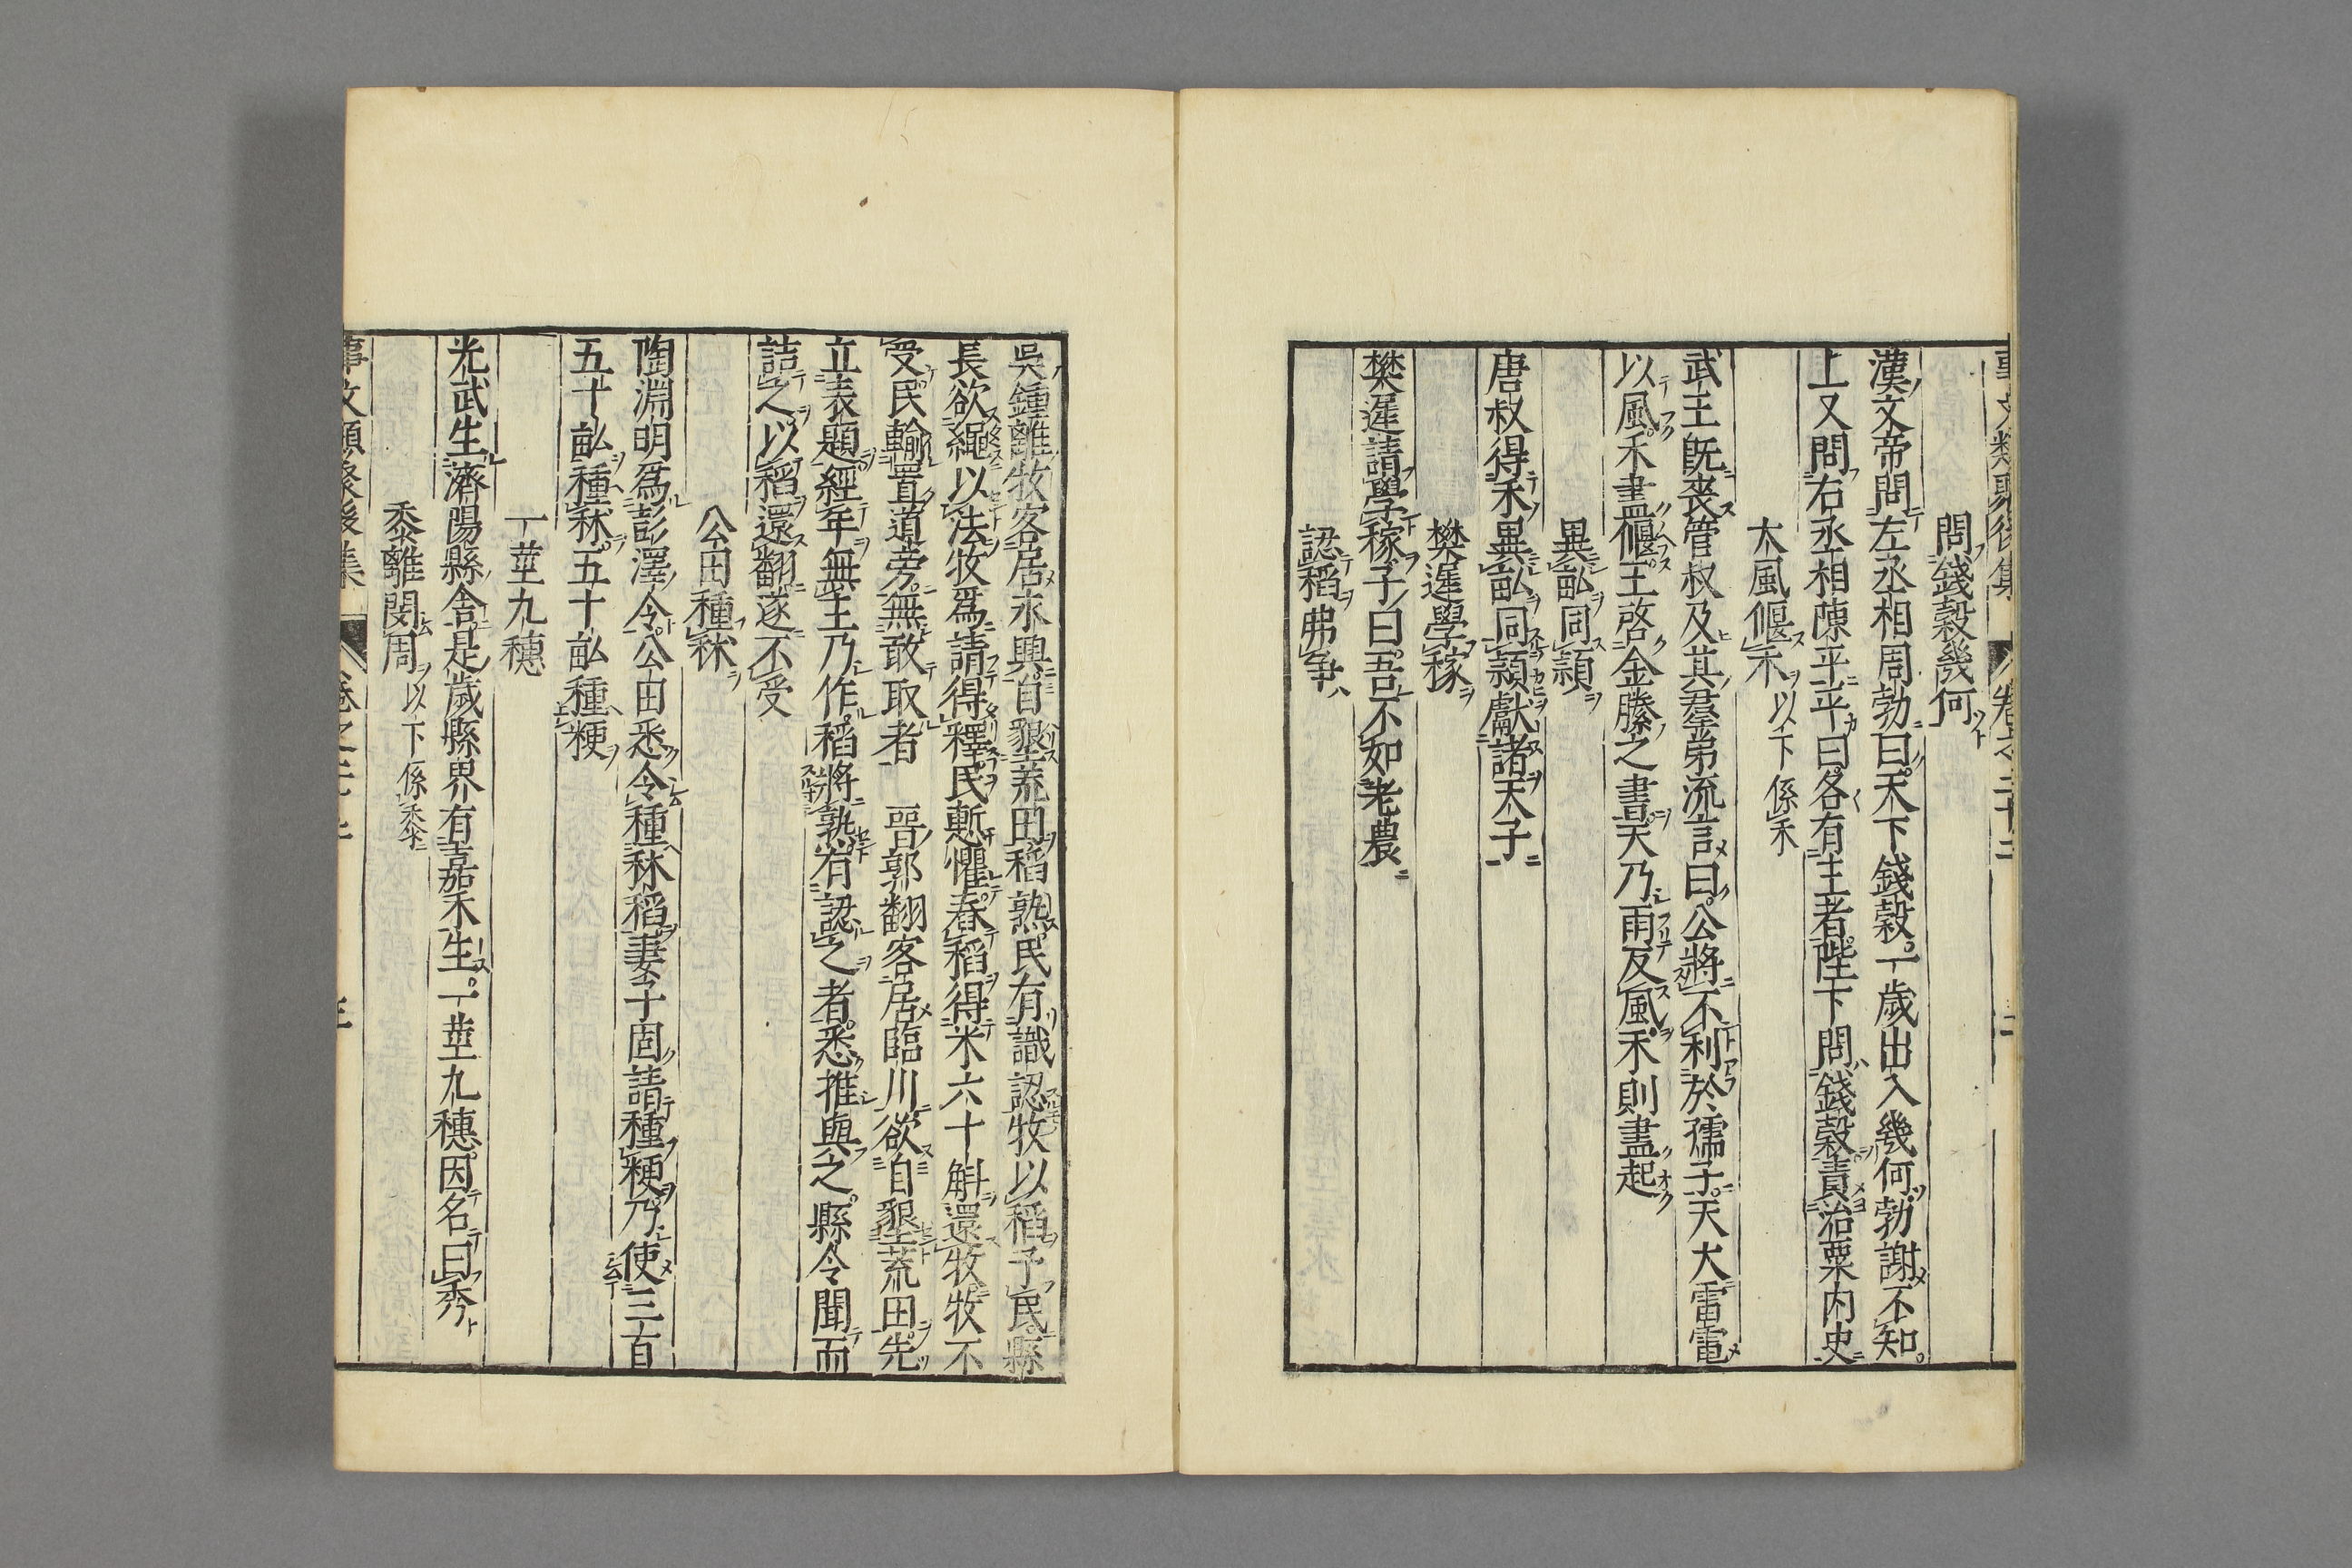 事文類聚後集 卷之二十二 二
問錢穀幾何
漢文帝問左丞相周勃曰天下錢穀一歲出入幾何勃謝不知
上又問右丞相陳平平曰各有主者陛下問錢穀責治粟內史
大風偃禾以下係禾
武王既喪管叔及其羣弟流言曰公將不利於孺子天大雷電
以風禾盡偃王啓金縢之書天乃雨反風禾則盡起
異畝同頴
唐叔得禾異畝同頴獻諸天子
樊遲學稼
樊遲請學稼子曰吾不如老農
認稻弗争
吳鍾離牧客居永興自墾荒田稻熟民有識認牧以稻予民縣
長欲繩以法牧爲請得釋民慙懼舂稻得米六十斛還牧牧不
受民輸置道旁無敢取者 晉郭翻客居臨川欲自墾荒田先
立表題經年無主乃作稻將熟有認之者悉推與之縣令聞而
詰之以稻還翻遂不受
公田種秫
陶淵明爲彭澤令公田悉令種秫稻妻子固請種粳乃使三百
五十畝種秫五十畝種粳
一莖九穗
光武生濟陽縣舍是歲縣界有嘉禾生一莖九穗因名曰秀
黍離閔周以下係黍
事文類聚後集 卷之二十二 三